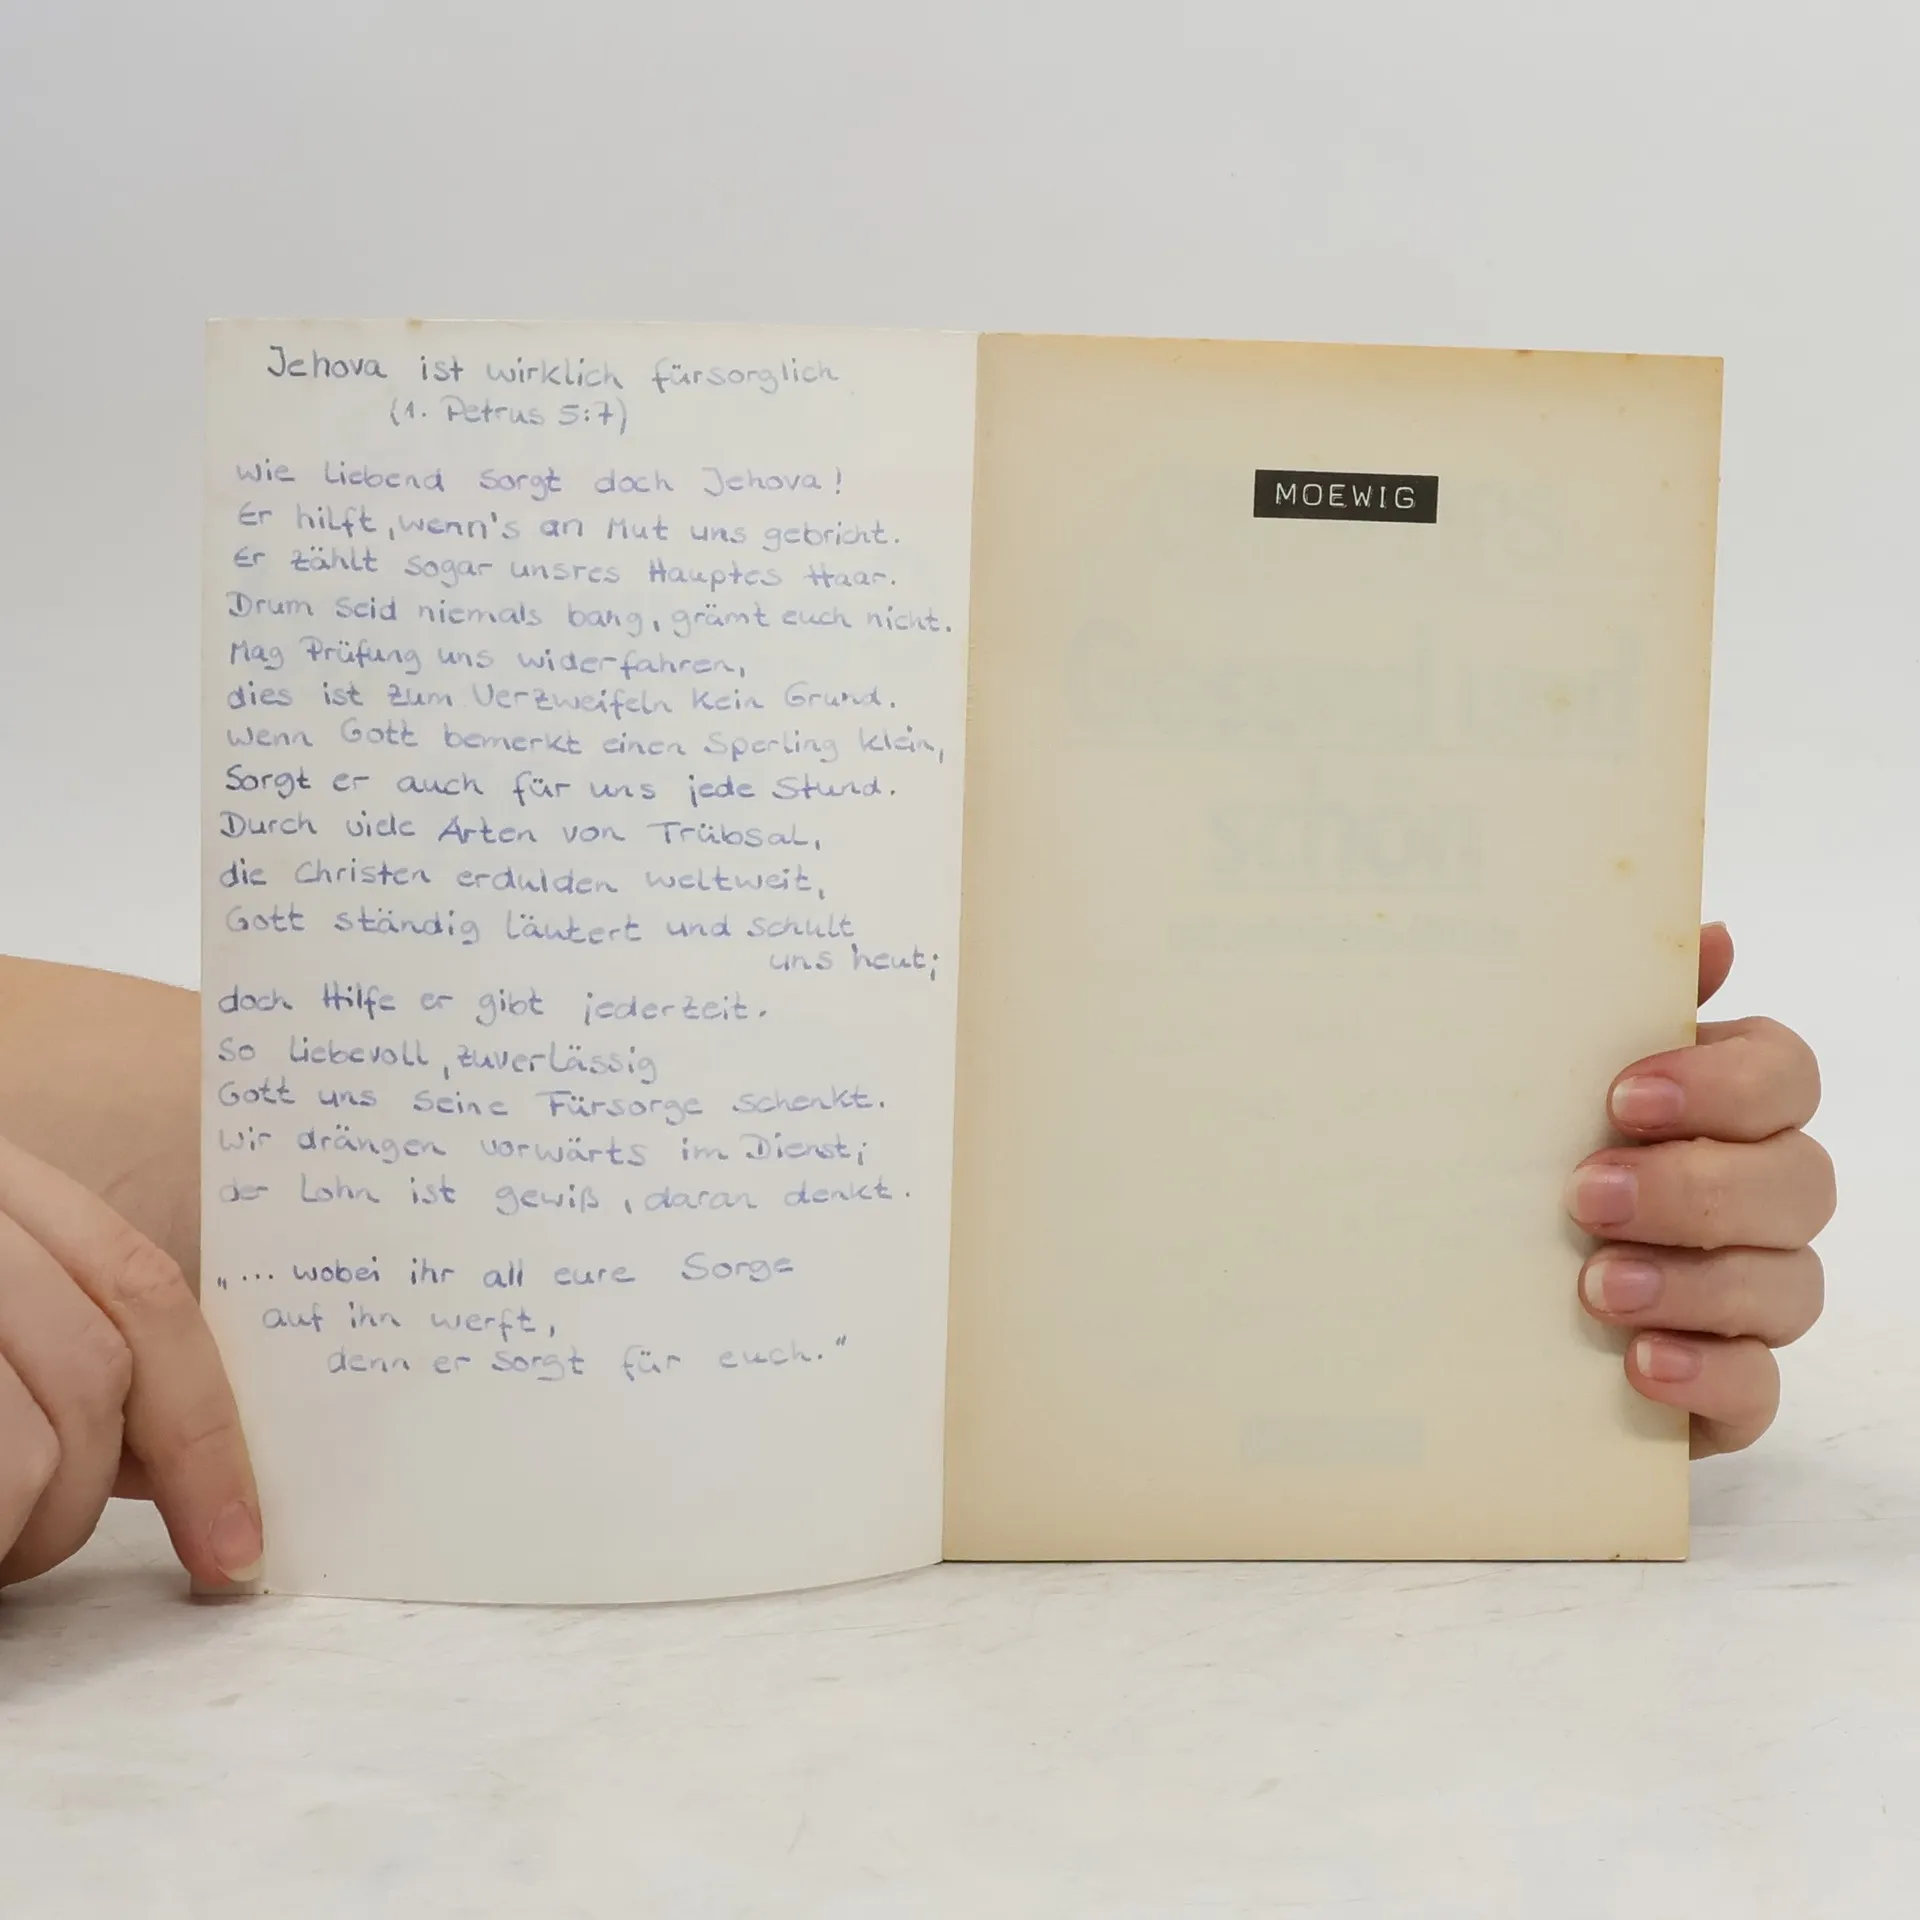 Jehova ist wirklich fürsorglich
(1. Petrus 5:7)
Wie liebend sorgt doch Jehova!
Er hilft, wenn's an Mut uns gebricht.
Er zählt sogar unsres Hauptes Haar.
Drum seid niemals bang, grämt euch nicht.
Mag Prüfung uns widerfahren,
dies ist zum Verzweifeln kein Grund.
Wenn Gott bemerkt einen Sperling klein,
Sorgt er auch für uns jede Stund.
Durch viele Arten von Trübsal,
die Christen erdulden weltweit,
Gott ständig läutert und schult
uns heut;
doch Hilfe er gibt jederzeit.
So liebevoll, zuverlässig
Gott uns seine Fürsorge schenkt.
Wir drängen vorwärts im Dienst;
der Lohn ist gewiß, daran denkt.
„... wobei ihr all eure Sorge
auf ihn werft,
denn er sorgt für euch."
MOEWIG